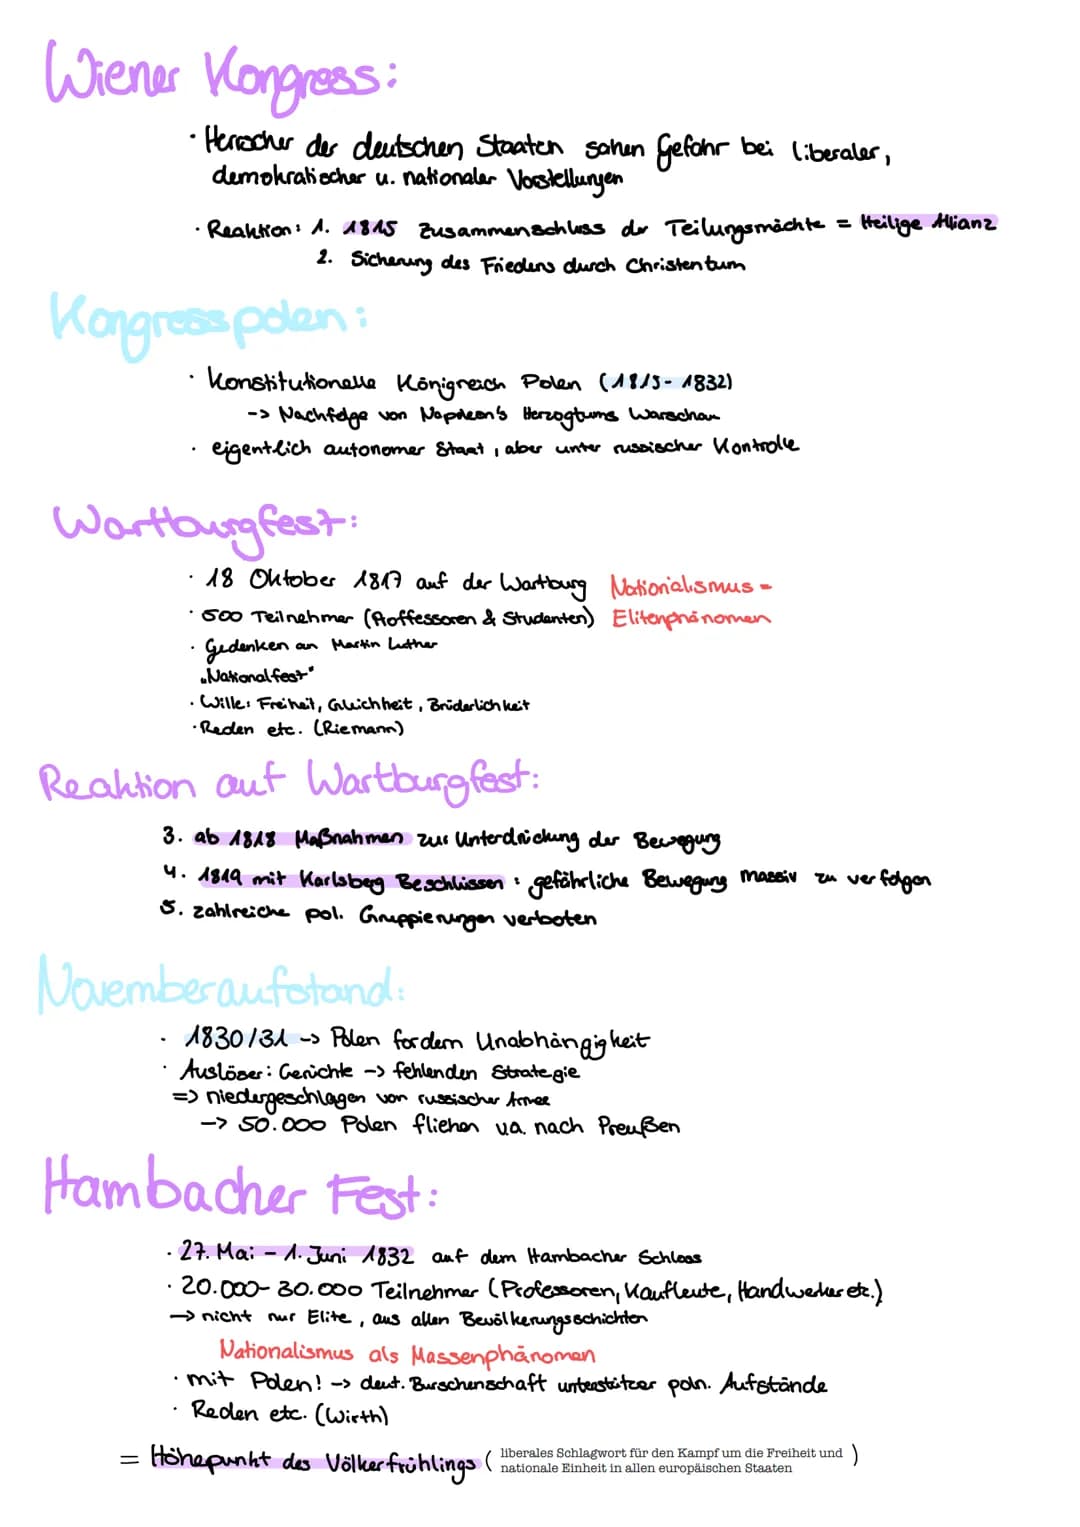 Wiener Kongress:
· Herrscher der deutschen Staaten sahen Gefahr bei liberaler,
demokratischer u. nationaler Vorstellungen
· Reaktion: 1. 1815 Zusammenschluss der Teilungsmächte = Heilige Allianz
2. Sicherung des Friedens durch Christentum
Kongresspolen:
· Konstitutionelle Königreich Polen (1815-1832)
-> Nachfolge von Napoleon's Herzogtums Warschau
· eigentlich autonomer Staat, aber unter russischer Kontrolle
Wartburgfest:
· 18 Oktober 1817 auf der Wartburg Nationalismus -
· 500 Teilnehmer (Proffessoren & Studenten) Elitenphänomen
· Gedenken an Martin Luther
„Nationalfest"
· Wille: Freiheit, Gleichheit, Brüderlichkeit
· Reden etc. (Riemann)
Reaktion auf Wartburgfest:
3. ab 1818 Maßnahmen zur Unterdrückung der Bewegung
4. 1819 mit Karlsberg Beschlüssen: gefährliche Bewegung massiv zu verfolgen
5. zahlreiche pol. Gruppierungen verboten
Novemberaufstand:
· 1830/31 -> Polen fordern Unabhängigkeit
· Auslöser: Gerüchte -> fehlenden Strategie
=> niedergeschlagen von russischer Armee
-> 50.000 Polen fliehen v.a. nach Preußen
Hambacher Fest:
· 27. Mai - 1. Juni 1832 auf dem Hambacher Schloss
· 20.000-30.000 Teilnehmer (Professoren, Kaufleute, Handwerker etc.)
-> nicht nur Elite, aus allen Bevölkerungsschichten
Nationalismus als Massenphänomen
· mit Polen! -> deut. Burschenschaft unterstützer poln. Aufstände
· Reden etc. (Wirth)
= Höhepunkt des Völkerfrühlings ( liberales Schlagwort für den Kampf um die Freiheit und )
nationale Einheit in allen europäischen Staaten